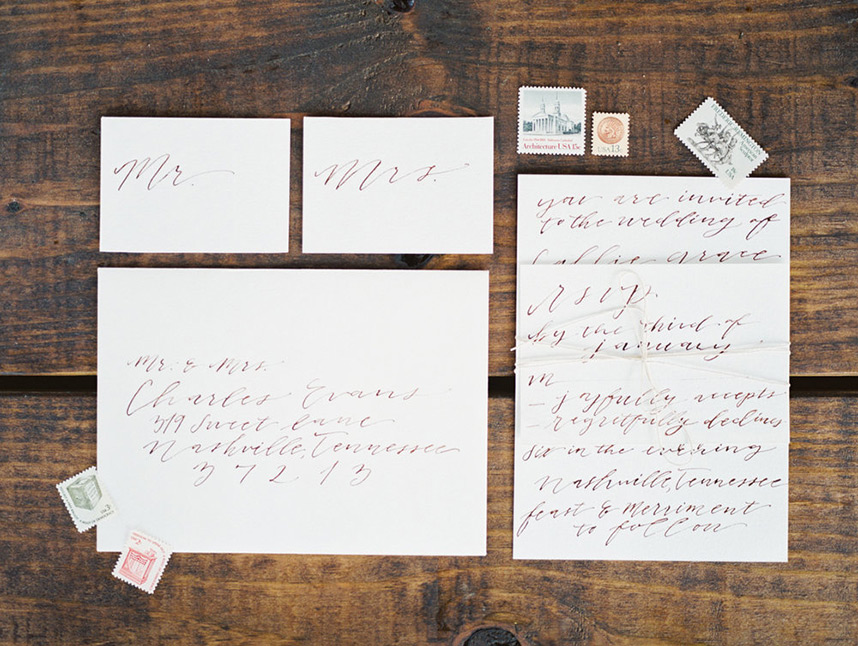 Mr.
Mrs.
Mr. & Mrs.
Charles Evans
319 Sweet Lane
Nashville, Tennessee
37213
Architecture USA 15c
USA 13c
you are invited
to the wedding of
Callie Grace
rsvp
by the third of
january
m
– joyfully accepts
– regritfully declines
six in the evening
Nashville, Tennessee
feast & merriment
to follow